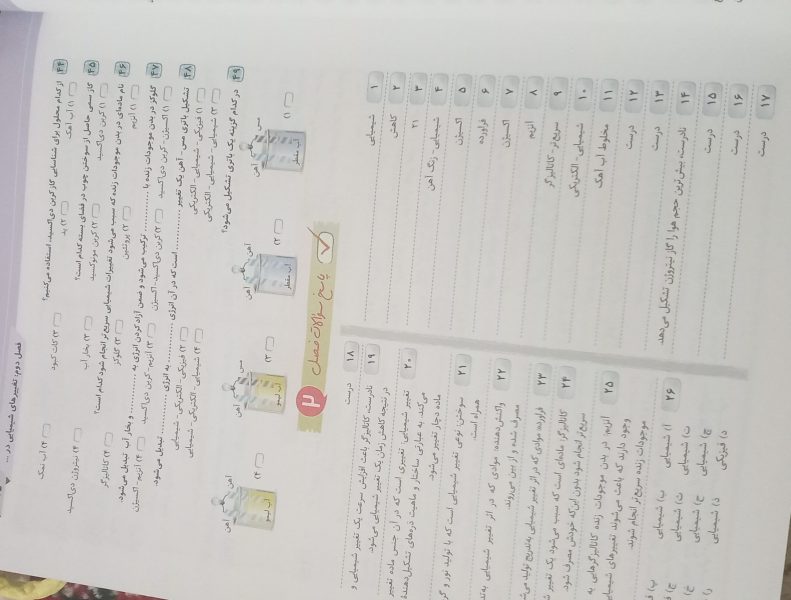 فصل دوم: تغییرهای شیمیایی در ...
۴۴ از کدام محلول برای شناسایی گاز کربن دی‌اکسید، استفاده می‌کنیم؟
۱) آب آهک ۲) ید ۳) کات کبود ۴) آب نمک
۴۵ گاز سمی حاصل از سوختن چوب در فضای بسته کدام است؟
۱) کربن دی‌اکسید ۲) کربن مونوکسید ۳) بخار آب ۴) نیتروژن دی‌اکسید
۴۶ نام ماده‌ای در بدن موجودات زنده که سبب می‌شود تغییرات شیمیایی سریع‌تر انجام شود کدام است؟
۱) آنزیم ۲) پروتئین ۳) گلوکز ۴) کاتالیزگر
۴۷ گلوکز در بدن موجودات زنده با .......... ترکیب می‌شود و ضمن آزاد کردن انرژی به .......... و بخار آب تبدیل می‌شود.
۱) اکسیژن - کربن دی‌اکسید ۲) کربن دی‌اکسید - اکسیژن ۳) آنزیم - کربن دی‌اکسید ۴) آنزیم - اکسیژن
۴۸ تشکیل باتری مس - آهن یک تغییر .......... است که در آن انرژی .......... به انرژی .......... تبدیل می‌شود.
۱) فیزیکی - شیمیایی - الکتریکی ۲) فیزیکی - الکتریکی - شیمیایی
۳) شیمیایی - شیمیایی - الکتریکی ۴) شیمیایی - الکتریکی - شیمیایی
۴۹ در کدام گزینه یک باتری تشکیل می‌شود؟
۱) ۲) ۳) ۴)
آهن مس آب مقطر
آهن آهن آب مقطر
آهن مس آب لیمو
آهن آهن آب لیمو
پاسخ سؤالات فصل ۲
۱ شیمیایی
۲ کاهش
۳ ۲۱
۴ شیمیایی - زنگ آهن
۵ اکسیژن
۶ فراورده
۷ اکسیژن
۸ آنزیم
۹ سریع‌تر - کاتالیزگر
۱۰ شیمیایی - الکتریکی
۱۱ مخلوط آب آهک
۱۲ درست
۱۳ درست
۱۴ نادرست، بیش‌ترین حجم هوا را گاز نیتروژن تشکیل می‌دهد.
۱۵ درست
۱۶ درست
۱۷ درست
۱۸ درست
۱۹ نادرست، کاتالیزگر باعث افزایش سرعت یک تغییر شیمیایی و
در نتیجه کاهش زمان یک تغییر شیمیایی می‌شود.
۲۰ تغییر شیمیایی، تغییری است که در آن جنس ماده تغییر
می‌کند. به عبارتی ساختار و ماهیت ذره‌های تشکیل‌دهنده
ماده دچار تغییر می‌شود.
۲۱ سوختن، نوعی تغییر شیمیایی است که با تولید نور و
همراه است.
۲۲ واکنش‌دهنده: موادی که در اثر تغییر شیمیایی
مصرف شده و از بین می‌روند.
۲۳ فراورده: موادی که در اثر تغییر شیمیایی به‌تدریج تولید
۲۴ کاتالیزگر: ماده‌ای است که سبب می‌شود یک تغییر
سریع‌تر انجام شود بدون این‌که خودش مصرف شود.
۲۵ آنزیم در بدن موجودات زنده کاتالیزگرهایی به
وجود دارند که باعث می‌شوند تغییرهای
موجودات زنده سریع‌تر انجام شوند.
۲۶ آ) شیمیایی ب) شیمیایی
ت) شیمیایی ث) شیمیایی
ج) شیمیایی ح) شیمیایی
د) فیزیکی ذ) شیمیایی